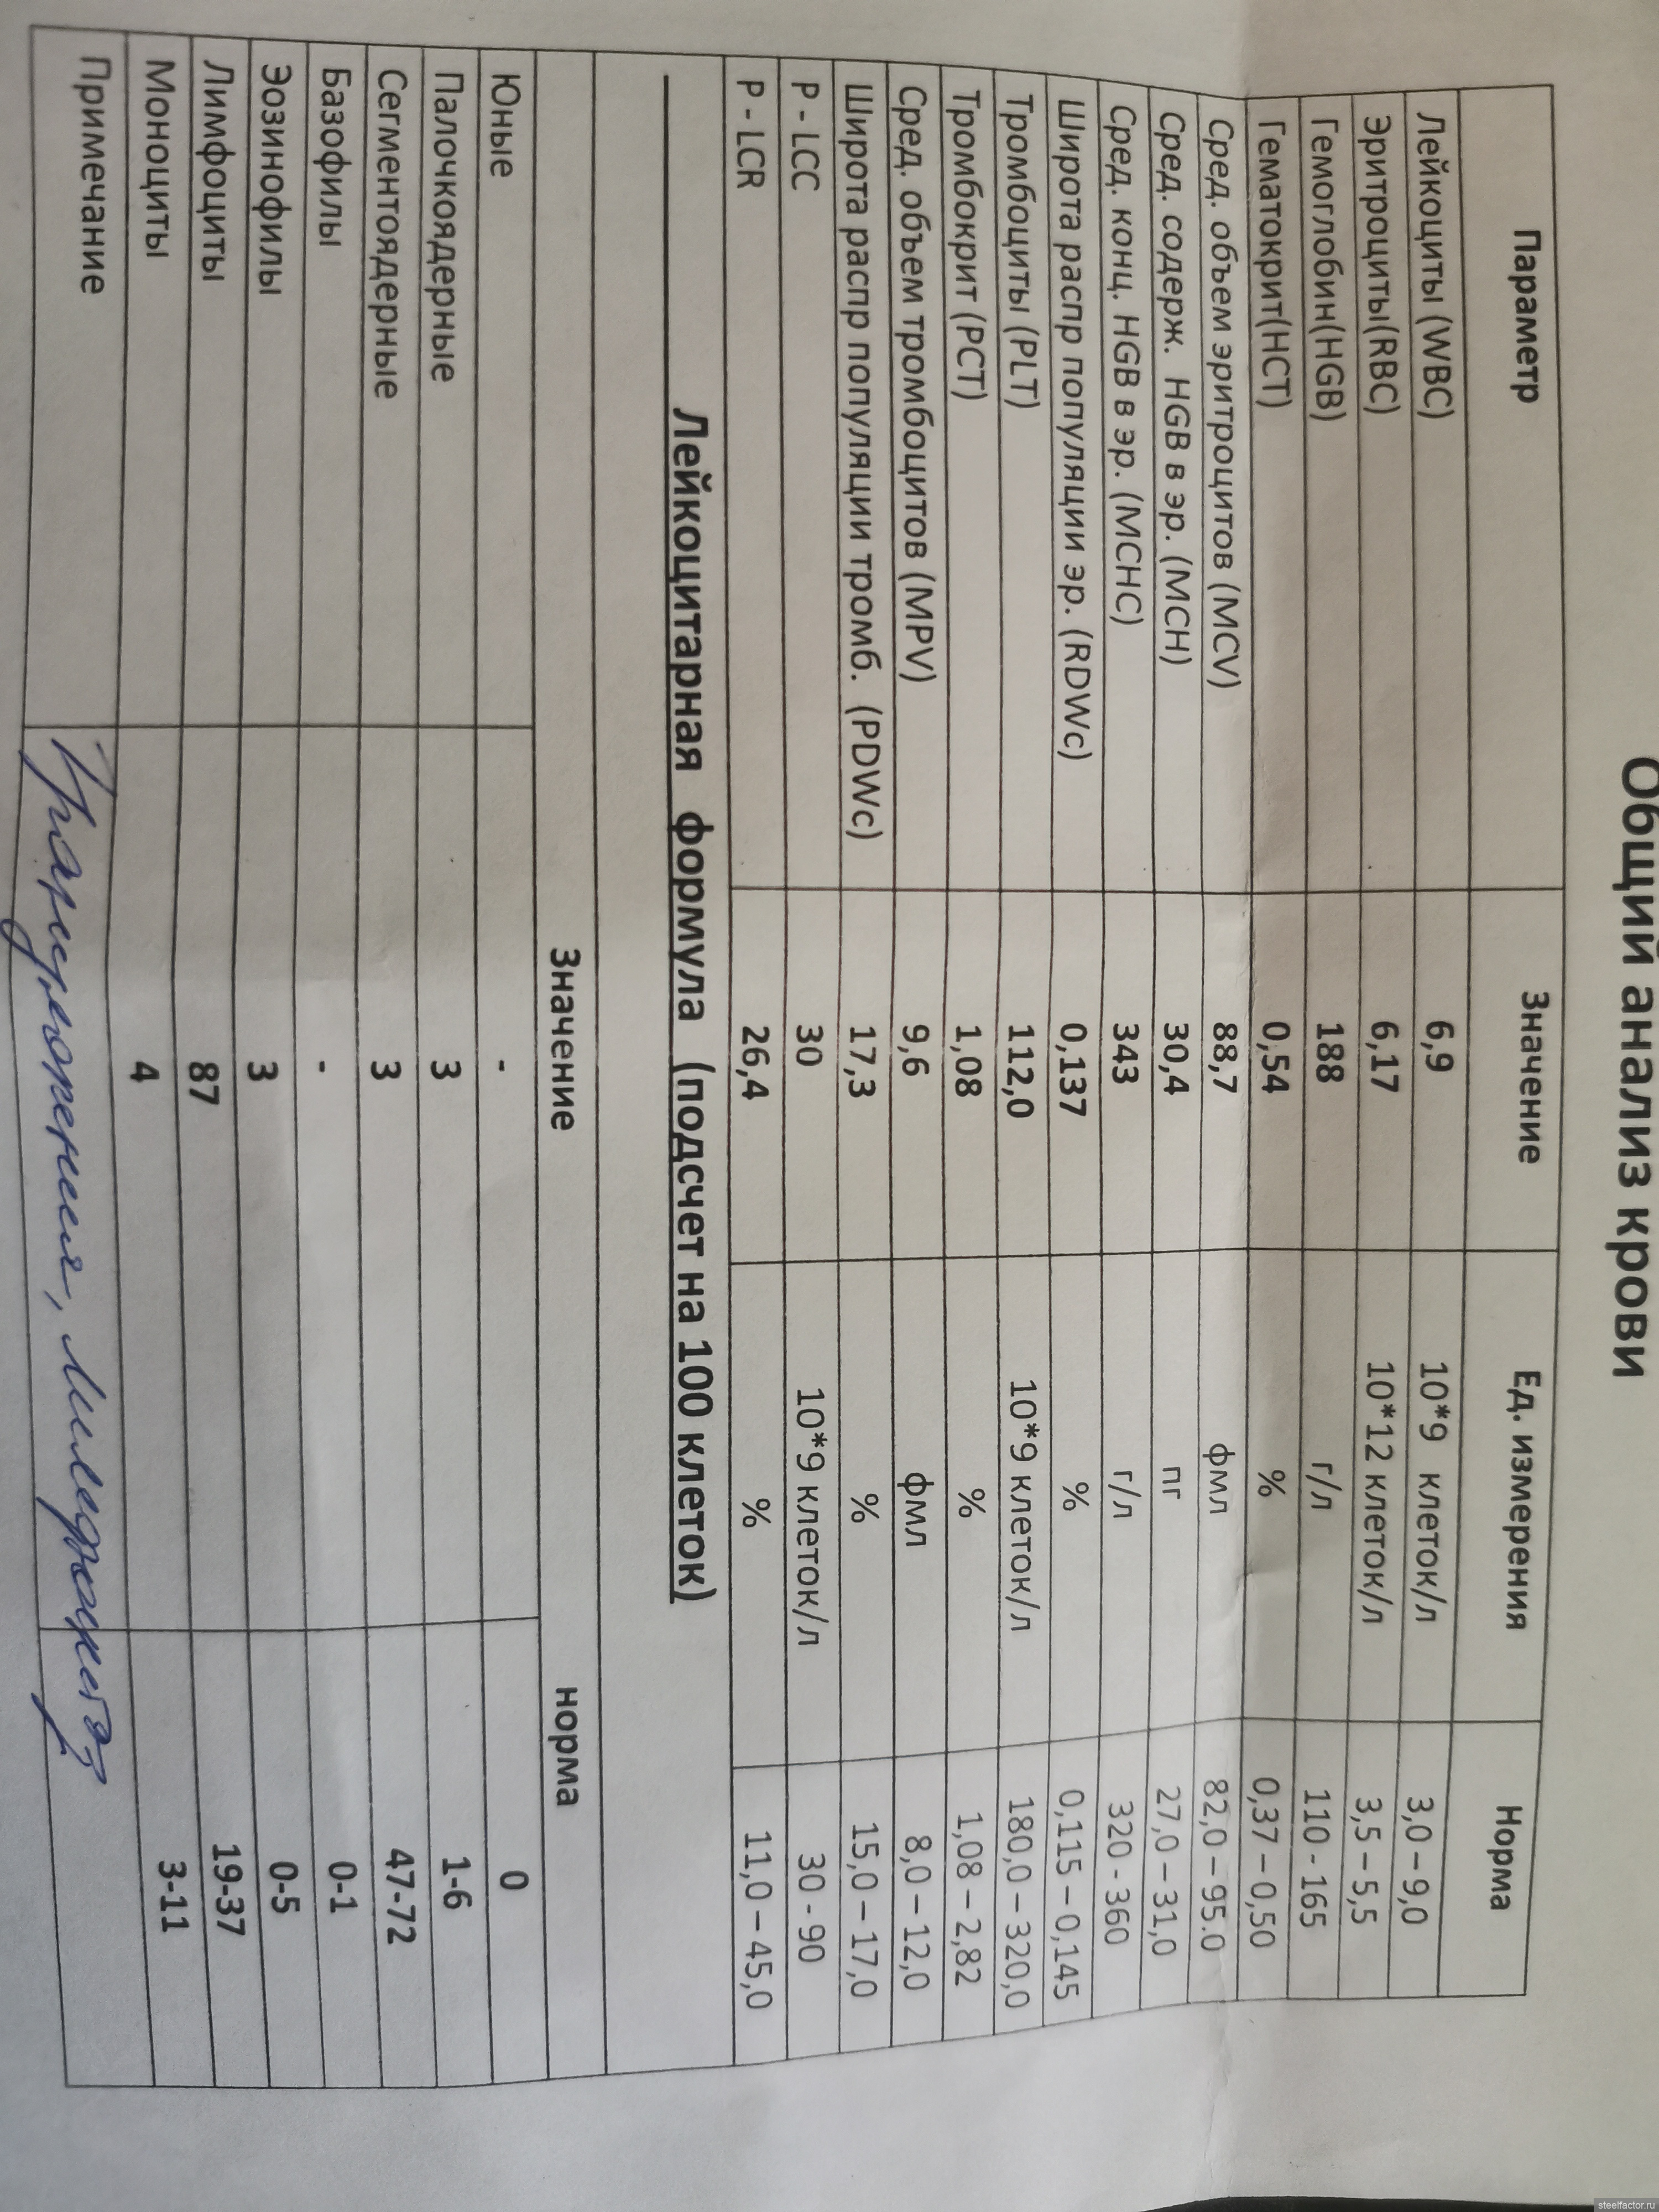 Общий анализ крови
Параметр Значение Ед. измерения Норма
Лейкоциты (WBC) 6,9 10*9 клеток/л 3,0 – 9,0
Эритроциты(RBC) 6,17 10*12 клеток/л 3,5 – 5,5
Гемоглобин(HGB) 188 г/л 110 - 165
Гематокрит(HCT) 0,54 % 0,37 – 0,50
Сред. объем эритроцитов (MCV) 88,7 фмл 82,0 – 95.0
Сред. содерж. HGB в эр. (MCH) 30,4 пг 27,0 – 31,0
Сред. конц. HGB в эр. (MCHC) 343 г/л 320 - 360
Широта распр популяции эр. (RDWc) 0,137 % 0,115 – 0,145
Тромбоциты (PLT) 112,0 10*9 клеток/л 180,0 – 320,0
Тромбокрит (PCT) 1,08 % 1,08 – 2,82
Сред. объем тромбоцитов (MPV) 9,6 фмл 8,0 – 12,0
Широта распр популяции тромб. (PDWc) 17,3 % 15,0 – 17,0
P - LCC 30 10*9 клеток/л 30 - 90
P - LCR 26,4 % 11,0 – 45,0
Лейкоцитарная формула (подсчет на 100 клеток)
Значение норма
Юные - 0
Палочкоядерные 3 1-6
Сегментоядерные 3 47-72
Базофилы - 0-1
Эозинофилы 3 0-5
Лимфоциты 87 19-37
Моноциты 4 3-11
Примечание
steelfactor.ru